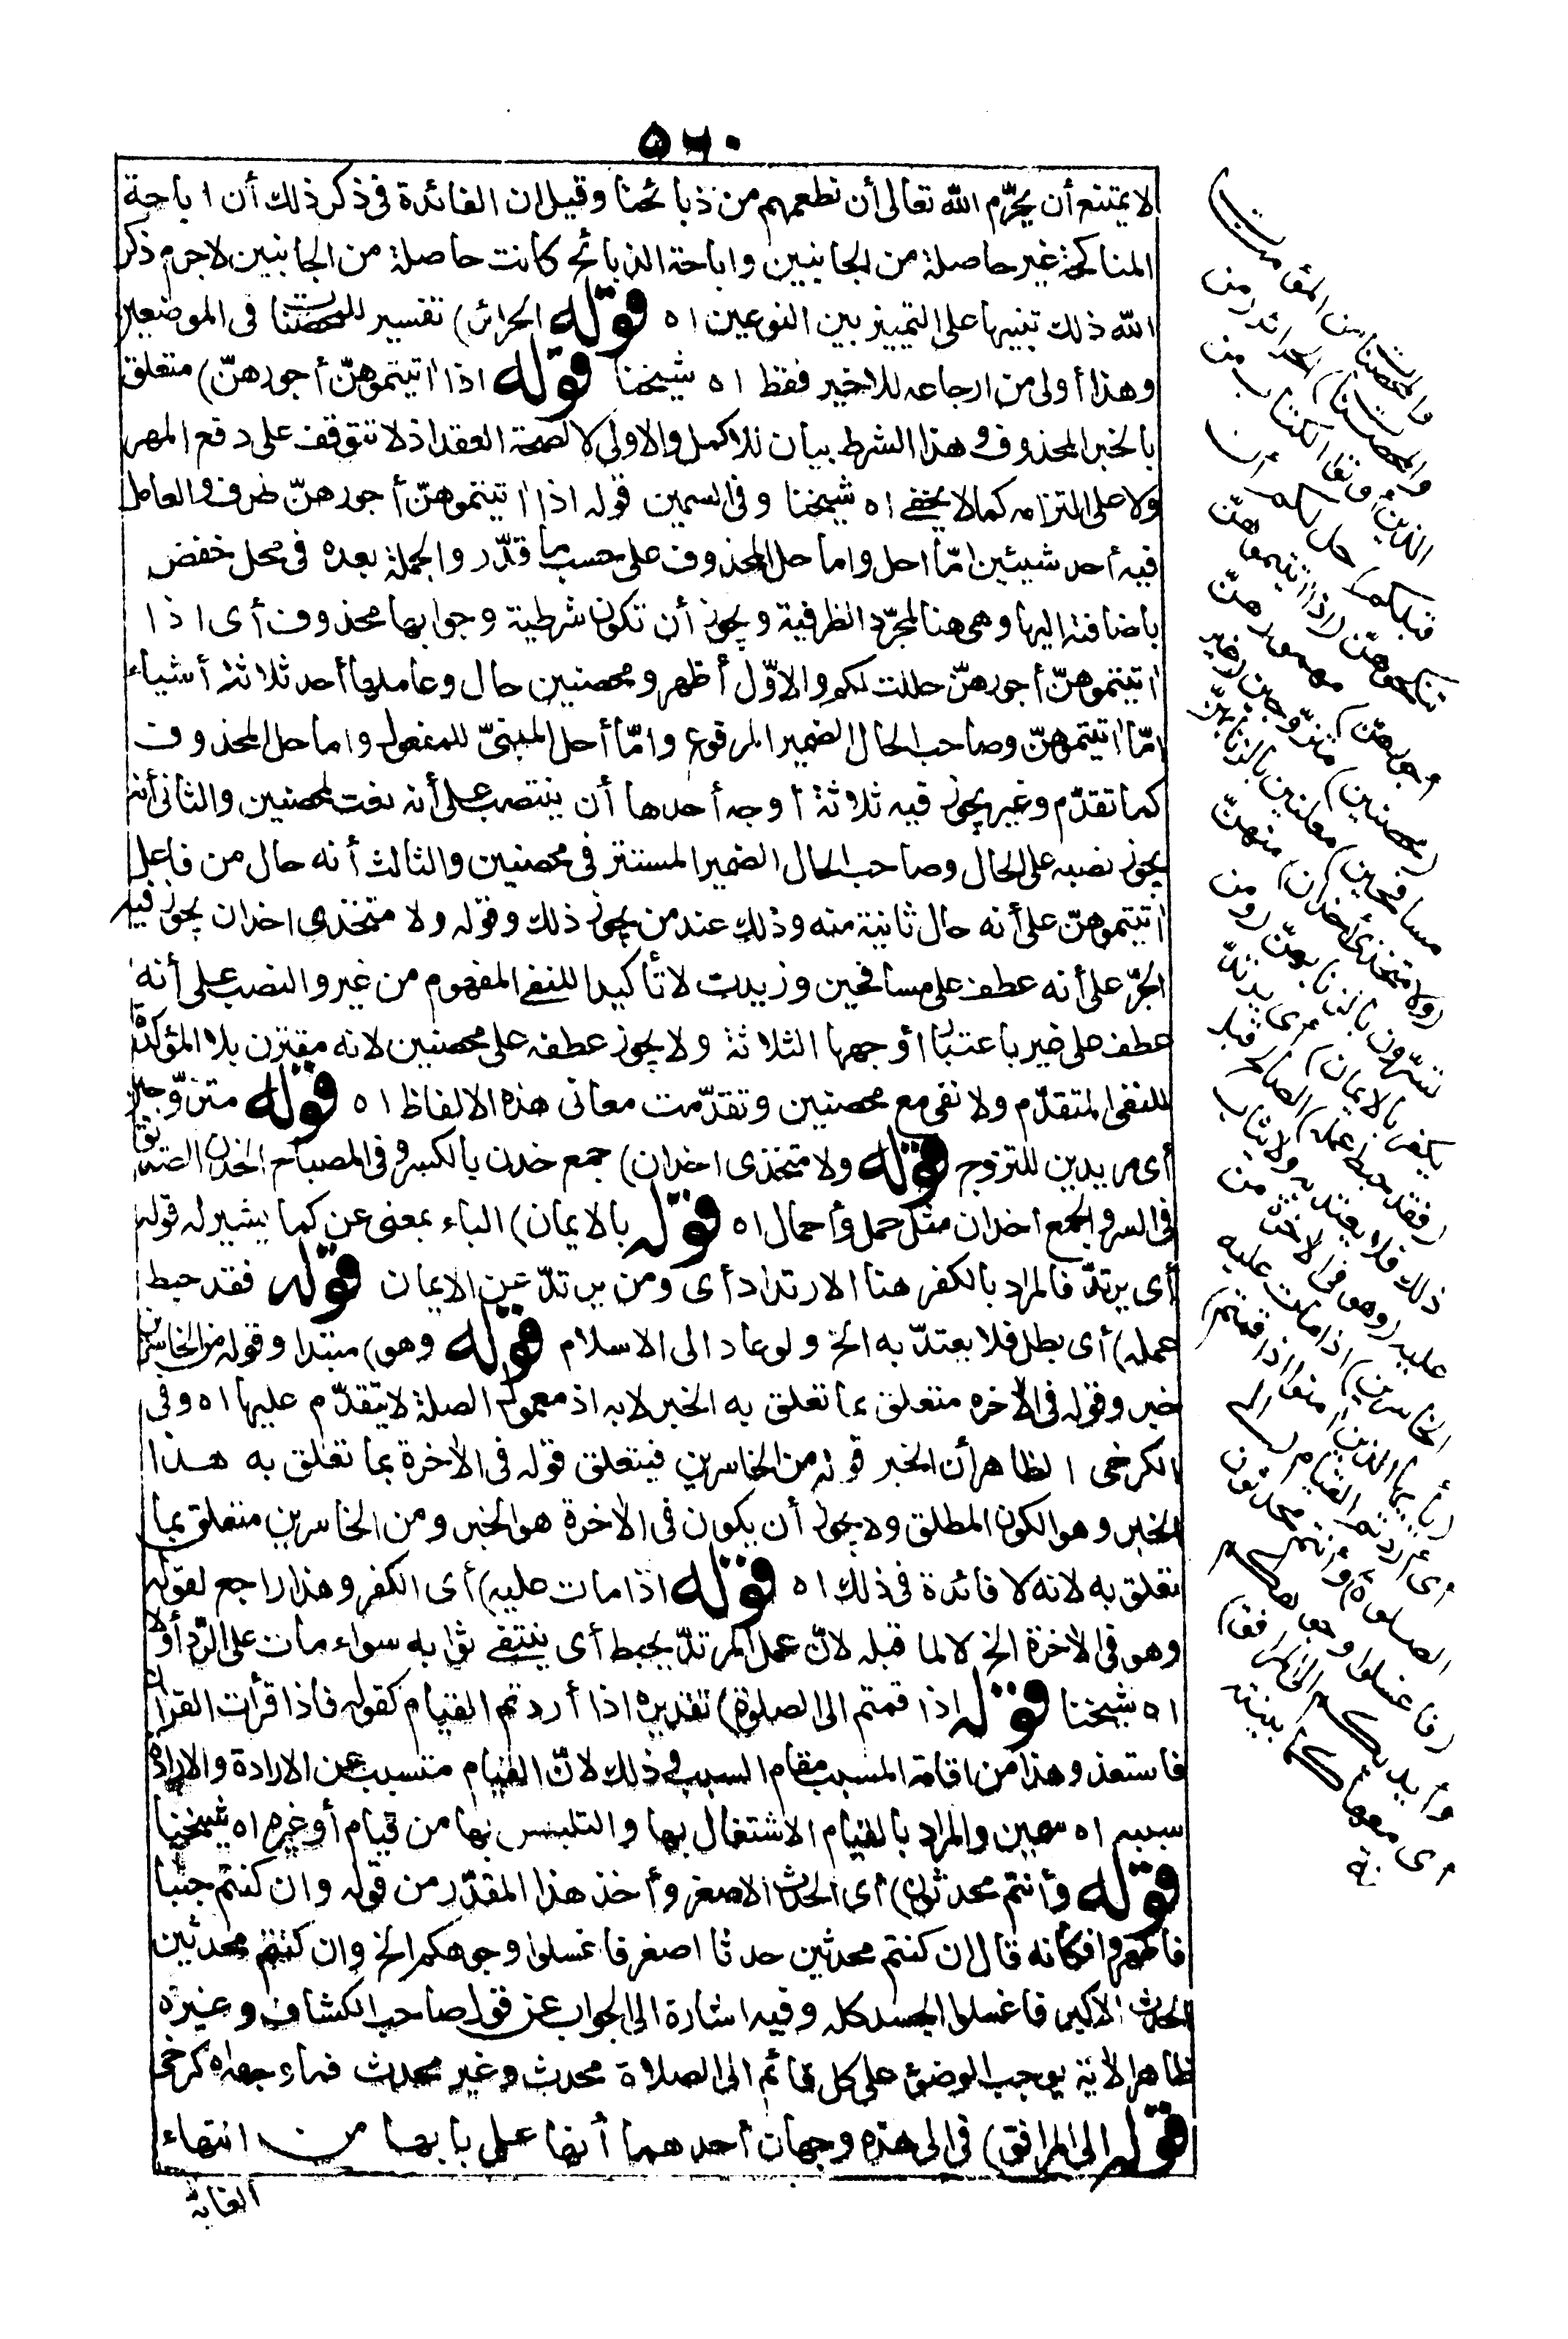 ٥٦٠
لا يمتنع أن يحرّم الله تعالى أن نطعمهم من ذبائحنا وقيل ان الفائدة فى ذكر ذلك أن اباحة
المناكحة غير حاصلة من الجانبين واباحة الذبائح كانت حاصلة من الجانبين لاجرم ذكر
الله ذلك تنبيها على التمييز بين النوعين اه قوله الحرائر) تفسير للمحصنات فى الموضعين
وهذا أولى من ارجاعه للاخير فقط اه شيخنا قوله اذا اتيتموهنّ أجورهنّ) متعلق
بالخبر المحذوف وهذا الشرط بيان للاكمل والاولى لا لصحة العقد اذ لا تتوقف على دفع المهر
ولا على التزامه كما لا يخفى اه شيخنا وفى السمين قوله اذا اتيتموهنّ أجورهنّ ظرف والعامل
فيه أحد شيئين امّا احل واما حل المحذوف على حسب ما قدّر والجملة بعده فى محل خفض
باضافته اليها وهى هنا لمجرّد الظرفية ويجوز أن تكون شرطية وجوابها محذوف أى اذا
اتيتموهنّ أجورهنّ حللت لكم والاوّل أظهر ومحصنين حال وعاملها أحد ثلاثة أشياء
امّا اتيتموهنّ وصاحب الحال الضمير المرفوع وامّا أحل المبنىّ للمفعول واما حل المحذوف
كما تقدّم وغير يجوز فيه ثلاثة أوجه أحدها أن ينتصب على أنه نعت لمحصنين والثانى أنه
يجوز نصبه على الحال وصاحب الحال الضمير المستتر فى محصنين والثالث أنه حال من فاعل
اتيتموهنّ على أنه حال ثانية منه وذلك عند من يجوز ذلك وقوله ولا متخذى اخدان يجوز فيه
الجرّ على أنه عطف على مسافحين وزيدت لا تأكيدا للنفى المفهوم من غير والنصب على أنه
عطف على غير باعتبار أوجهها الثلاثة ولا يجوز عطفه على محصنين لانه مقترن بلا المؤكدة
للنفى المتقدّم ولا نفى مع محصنين وتقدّمت معانى هذه الالفاظ اه قوله متزوّجين
أى مريدين للتزوج قوله ولا متخذى اخدان) جمع خدن بالكسر وفى المصباح الخدن الصديق
فى السر والجمع اخدان مثل حمل وأحمال اه قوله بالايمان) الباء بمعنى عن كما يشير له قوله
أى يرتدّ فالمراد بالكفر هنا الارتداد أى ومن يرتدّ عن الايمان قوله فقد حبط
عمله) أى بطل فلا يعتدّ به الخ ولو عاد الى الاسلام قوله وهو) مبتدا وقوله من الخاسرين
خبر وقوله فى الآخرة متعلق بما تعلق به الخبر لا به اذ معمول الصلة لا يتقدّم عليها اه وفى
الكرخى الظاهر أن الخبر قوله من الخاسرين فيتعلق قوله فى الآخرة بما تعلق به هذا
الخبر وهو الكون المطلق ولا يجوز أن يكون فى الآخرة هو الخبر ومن الخاسرين متعلق بما
تعلق به لانه لا فائدة فى ذلك اه قوله اذا مات عليه) أى الكفر وهذا راجع لقوله
وهو فى الآخرة الخ لا لما قبله لانّ عمل المرتدّ يحبط أى ينتفى ثوابه سواء مات على الرّد أولا
اه شيخنا قوله اذا قمتم الى الصلوة) تقديره اذا أردتم القيام كقوله فاذا قرأت القران
فاستعذ وهذا من اقامة المسبب مقام السبب وذلك لانّ القيام متسبب عن الارادة والارادة
سببه اه سمين والمراد بالقيام الاشتغال بها والتلبس بها من قيام أو غيره اه شيخنا
قوله وأنتم محدثون) أى الحدث الاصغر وأخذ هذا المقدّر من قوله وان كنتم جنبا
فاطهروا فكانه قال ان كنتم محدثين حدثا اصغر فاغسلوا وجوهكم الخ وان كنتم محدثين
الحدث الاكبر فاغسلوا الجسد كله وفيه اشارة الى الجواب عن قول صاحب الكشاف وغيره
ظاهر الآية يوجب الوضوء على كل قائم الى الصلاة محدث وغير محدث فما وجهه اه كرخى
قوله الى المرافق) فى الى هذه وجهان أحدهما أنها على بابها من انتهاء
الغاية
والمحصنات من المؤمنات
والمحصنات) الحرائر (من
الذين أوتوا الكتاب من
قبلكم) حل لكم أن
تنكحوهنّ (اذا اتيتموهنّ
أجورهنّ) مهورهنّ
(محصنين) متزوجين (غير
مسافحين) معلنين بالزنا بهنّ
(ولا متخذى أخدان) منهنّ
تسرّون بالزنا بهنّ (ومن
يكفر بالايمان) أى يرتدّ
(فقد حبط عمله) الصالح قبل
ذلك فلا يعتد به ولا يثاب
عليه (وهو فى الآخرة من
الخاسرين) اذا مات عليه
(يأيها الذين امنوا اذا قمتم)
أى أردتم القيام (الى
الصلوة) وأنتم محدثون
(فاغسلوا وجوهكم
وأيديكم الى المرافق)
أى معها كما بينته